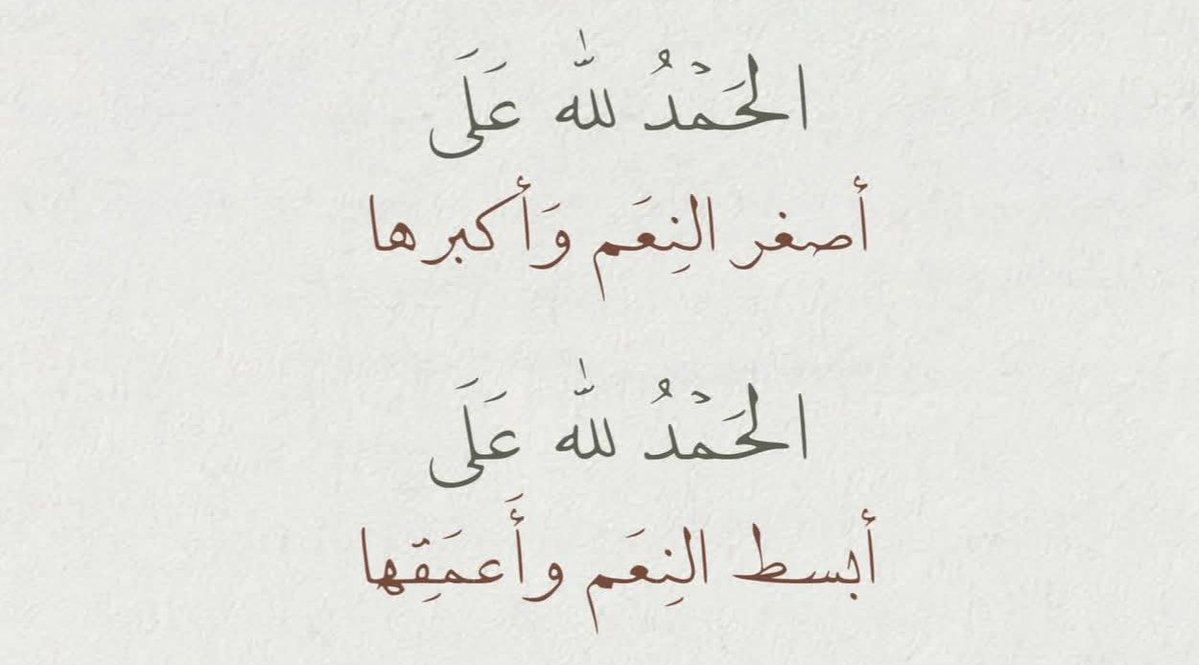 الحَمْدُ للّٰه عَلَى
أصغر النِعَم وَأكبرها
الحَمْدُ للّٰه عَلَى
أبسط النِعَم وأَعمَقِها